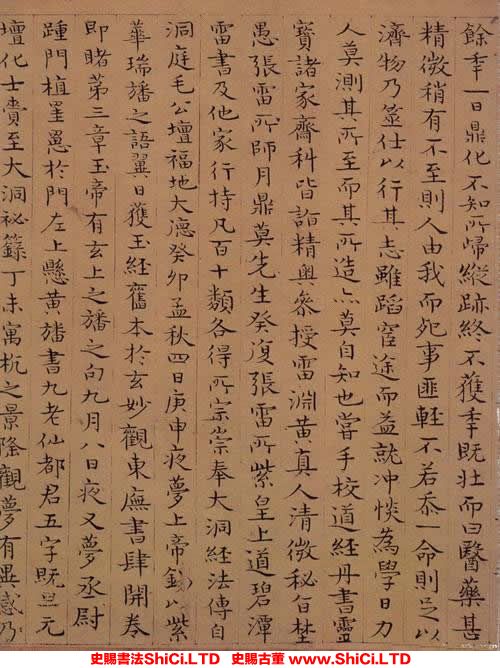 餘年一日鼎化不知所歸縱跡終不獲年既壯而曰醫藥甚
精微稍有不至則人由我而死事匪輕不若忝一命則足以
濟物乃筮仕以行其志雖蹈宦途而益就沖惔為學日力
人莫測其所至而其所造亦莫自知也嘗手校道經丹書靈
寶諸家齋科皆詣精奧參授雷淵黃真人清微秘旨埜
愚張雷所師月鼎莫先生癸復張雷所紫皇上道碧潭
雷書及他家行持凡百十類各得所宗崇奉大洞經法傳自
洞庭毛公壇福地大德癸卯孟秋四日庚申夜夢上帝錫以紫
華瑞旛之語翼日獲玉經舊本於玄妙觀東廡書肆開卷
即睹第三章玉帝有玄上之旛之句九月八日夜又夢丞尉
踵門植𦊆愚於門左上懸黃旛書九老仙都君五字既旦元
壇化士賷至大洞祕籙丁未寓杭之景隆觀夢有異感乃
史賜書法ShiCi.LTD 史賜古董 ShiCi.LTD